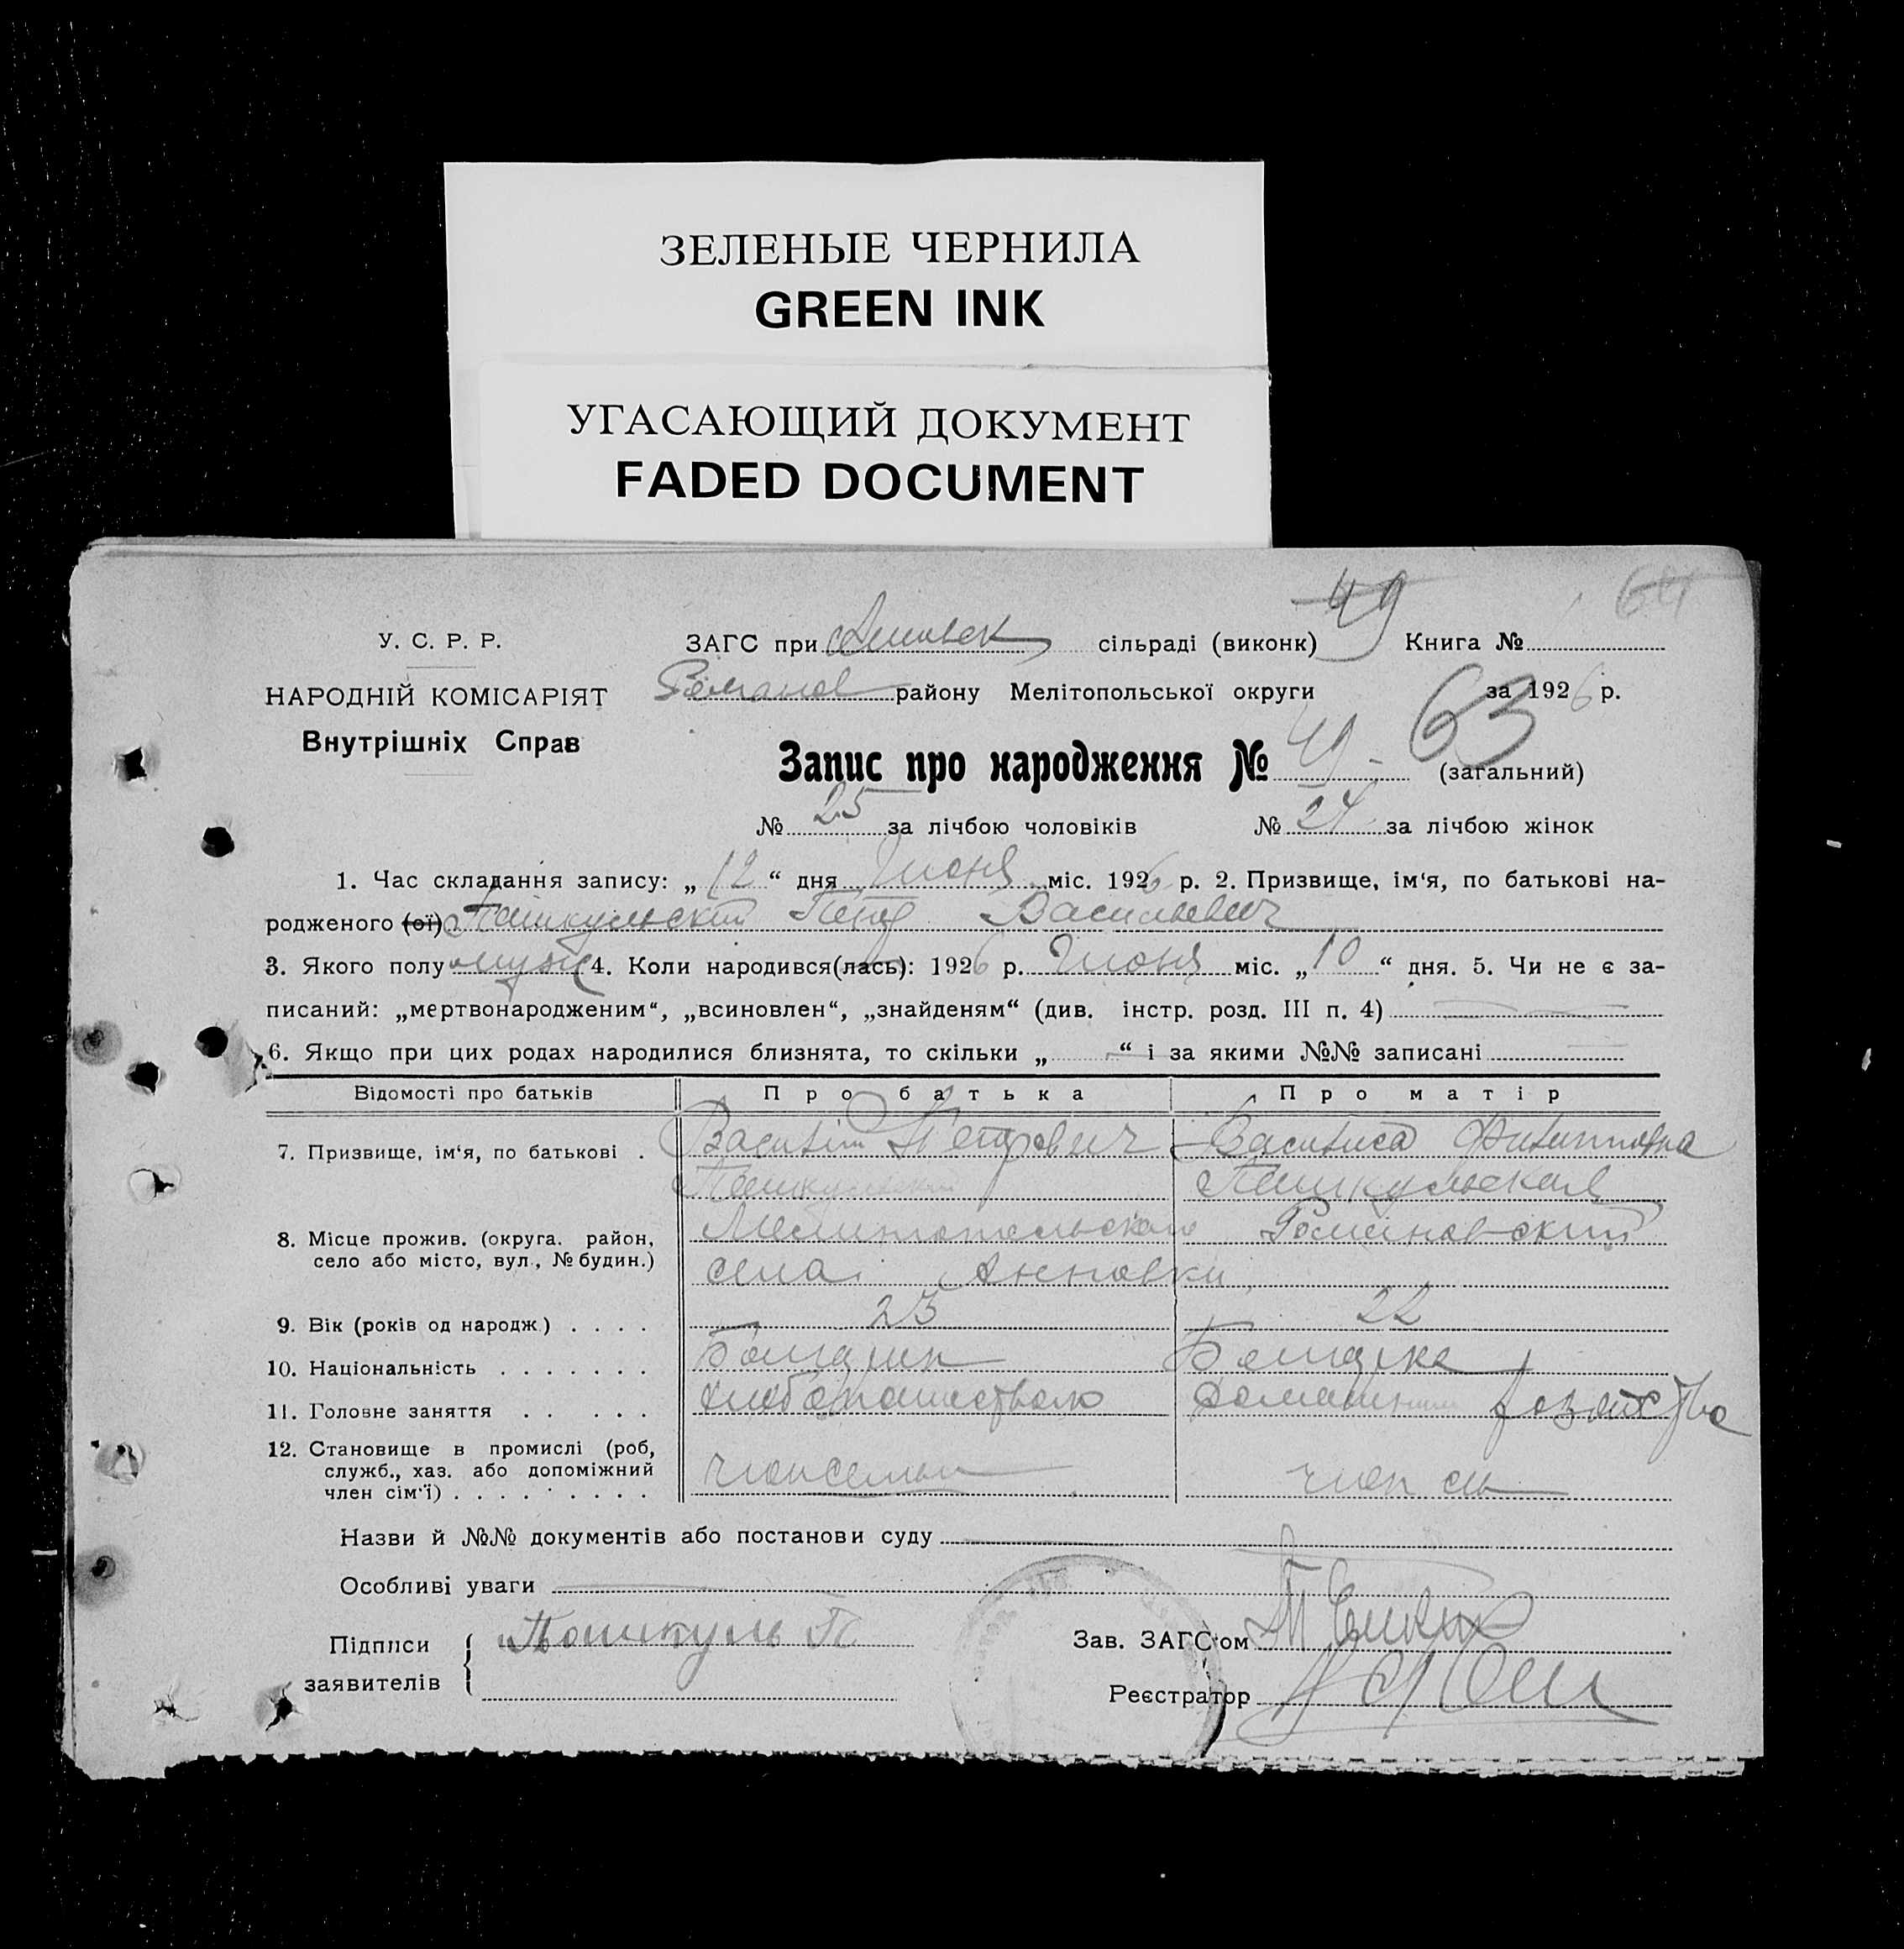 ЗЕЛЕНЫЕ ЧЕРНИЛА
GREEN INK
УГАСАЮЩИЙ ДОКУМЕНТ
FADED DOCUMENT
49 64
У. С. Р. Р. ЗАГС при сільраді (виконк) Книга №
НАРОДНІЙ КОМІСАРІЯТ Романов району Мелітопольської округи за 1926 р.
Внутрішніх Справ 63
Запис про народження № 49 (загальний)
№ 25 за лічбою чоловіків № 24 за лічбою жінок
1. Час складання запису: „12“ дня Июня міс. 1926 р. 2. Призвище, ім‘я, по батькові на-
родженого (ої) Пашкульский Петр Васильевич
3. Якого полу муж 4. Коли народився(лась): 1926 р. Июня міс. „10“ дня. 5. Чи не є за-
писаний: „мертвонародженим“, „всиновлен“, „знайденям“ (див. інстр. розд. III п. 4)
6. Якщо при цих родах народилися близнята, то скільки „ “ і за якими №№ записані
Відомості про батьків Про батька Про матір
7. Призвище, ім‘я, по батькові . Василий Петрович Василиса Филипповна
Пашкульский Пашкульская
8. Місце прожив. (округа. район, Мелитопольской Романовский
село або місто, вул., № будин.) села Анновки
9. Вік (років од народж.) . . . . 23 22
10. Національність . . . . . . . Болгарин Болгарка
11. Головне заняття . . . . . хлебопашество домашнее хозяйство
12. Становище в промислі (роб,
служб., хаз. або допоміжний член семьи член сем
член сім‘ї) . . . . . . . . .
Назви й №№ документів або постанови суду
Особливі уваги
Підписи Пошкуль П Зав. ЗАГС‘ом
заявителів Реєстратор